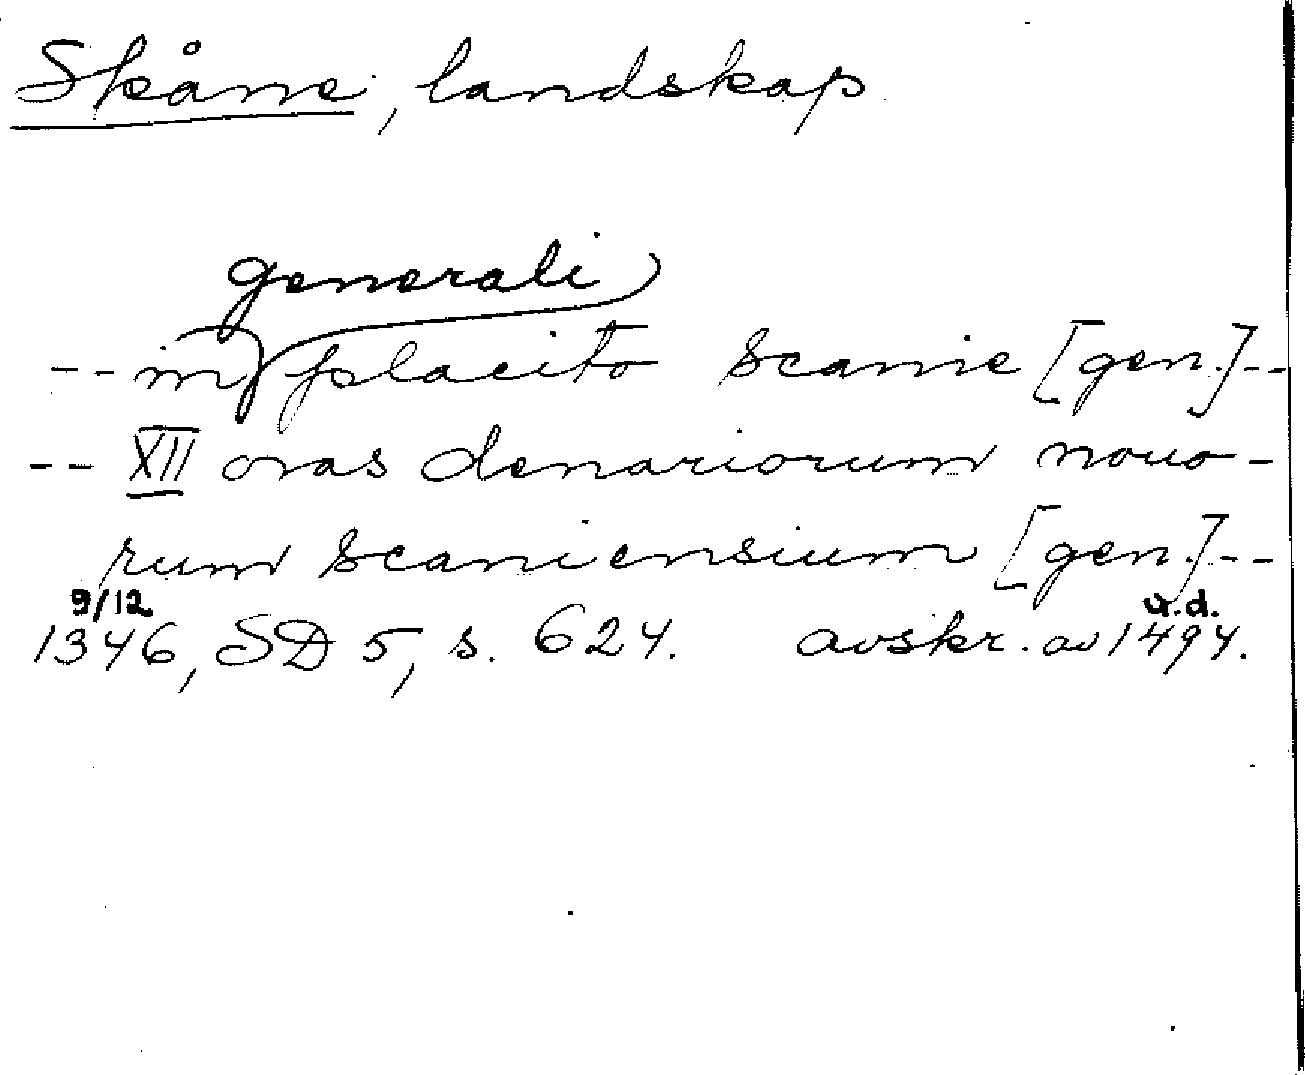 Skåne, landskap
generali
-- in placito Scanie [gen.] --
-- XII oras denariorum nouo-
rum Scaniensium [gen.] --
9/12 u.d.
1346, SD 5, s. 624. avskr. av 1494.